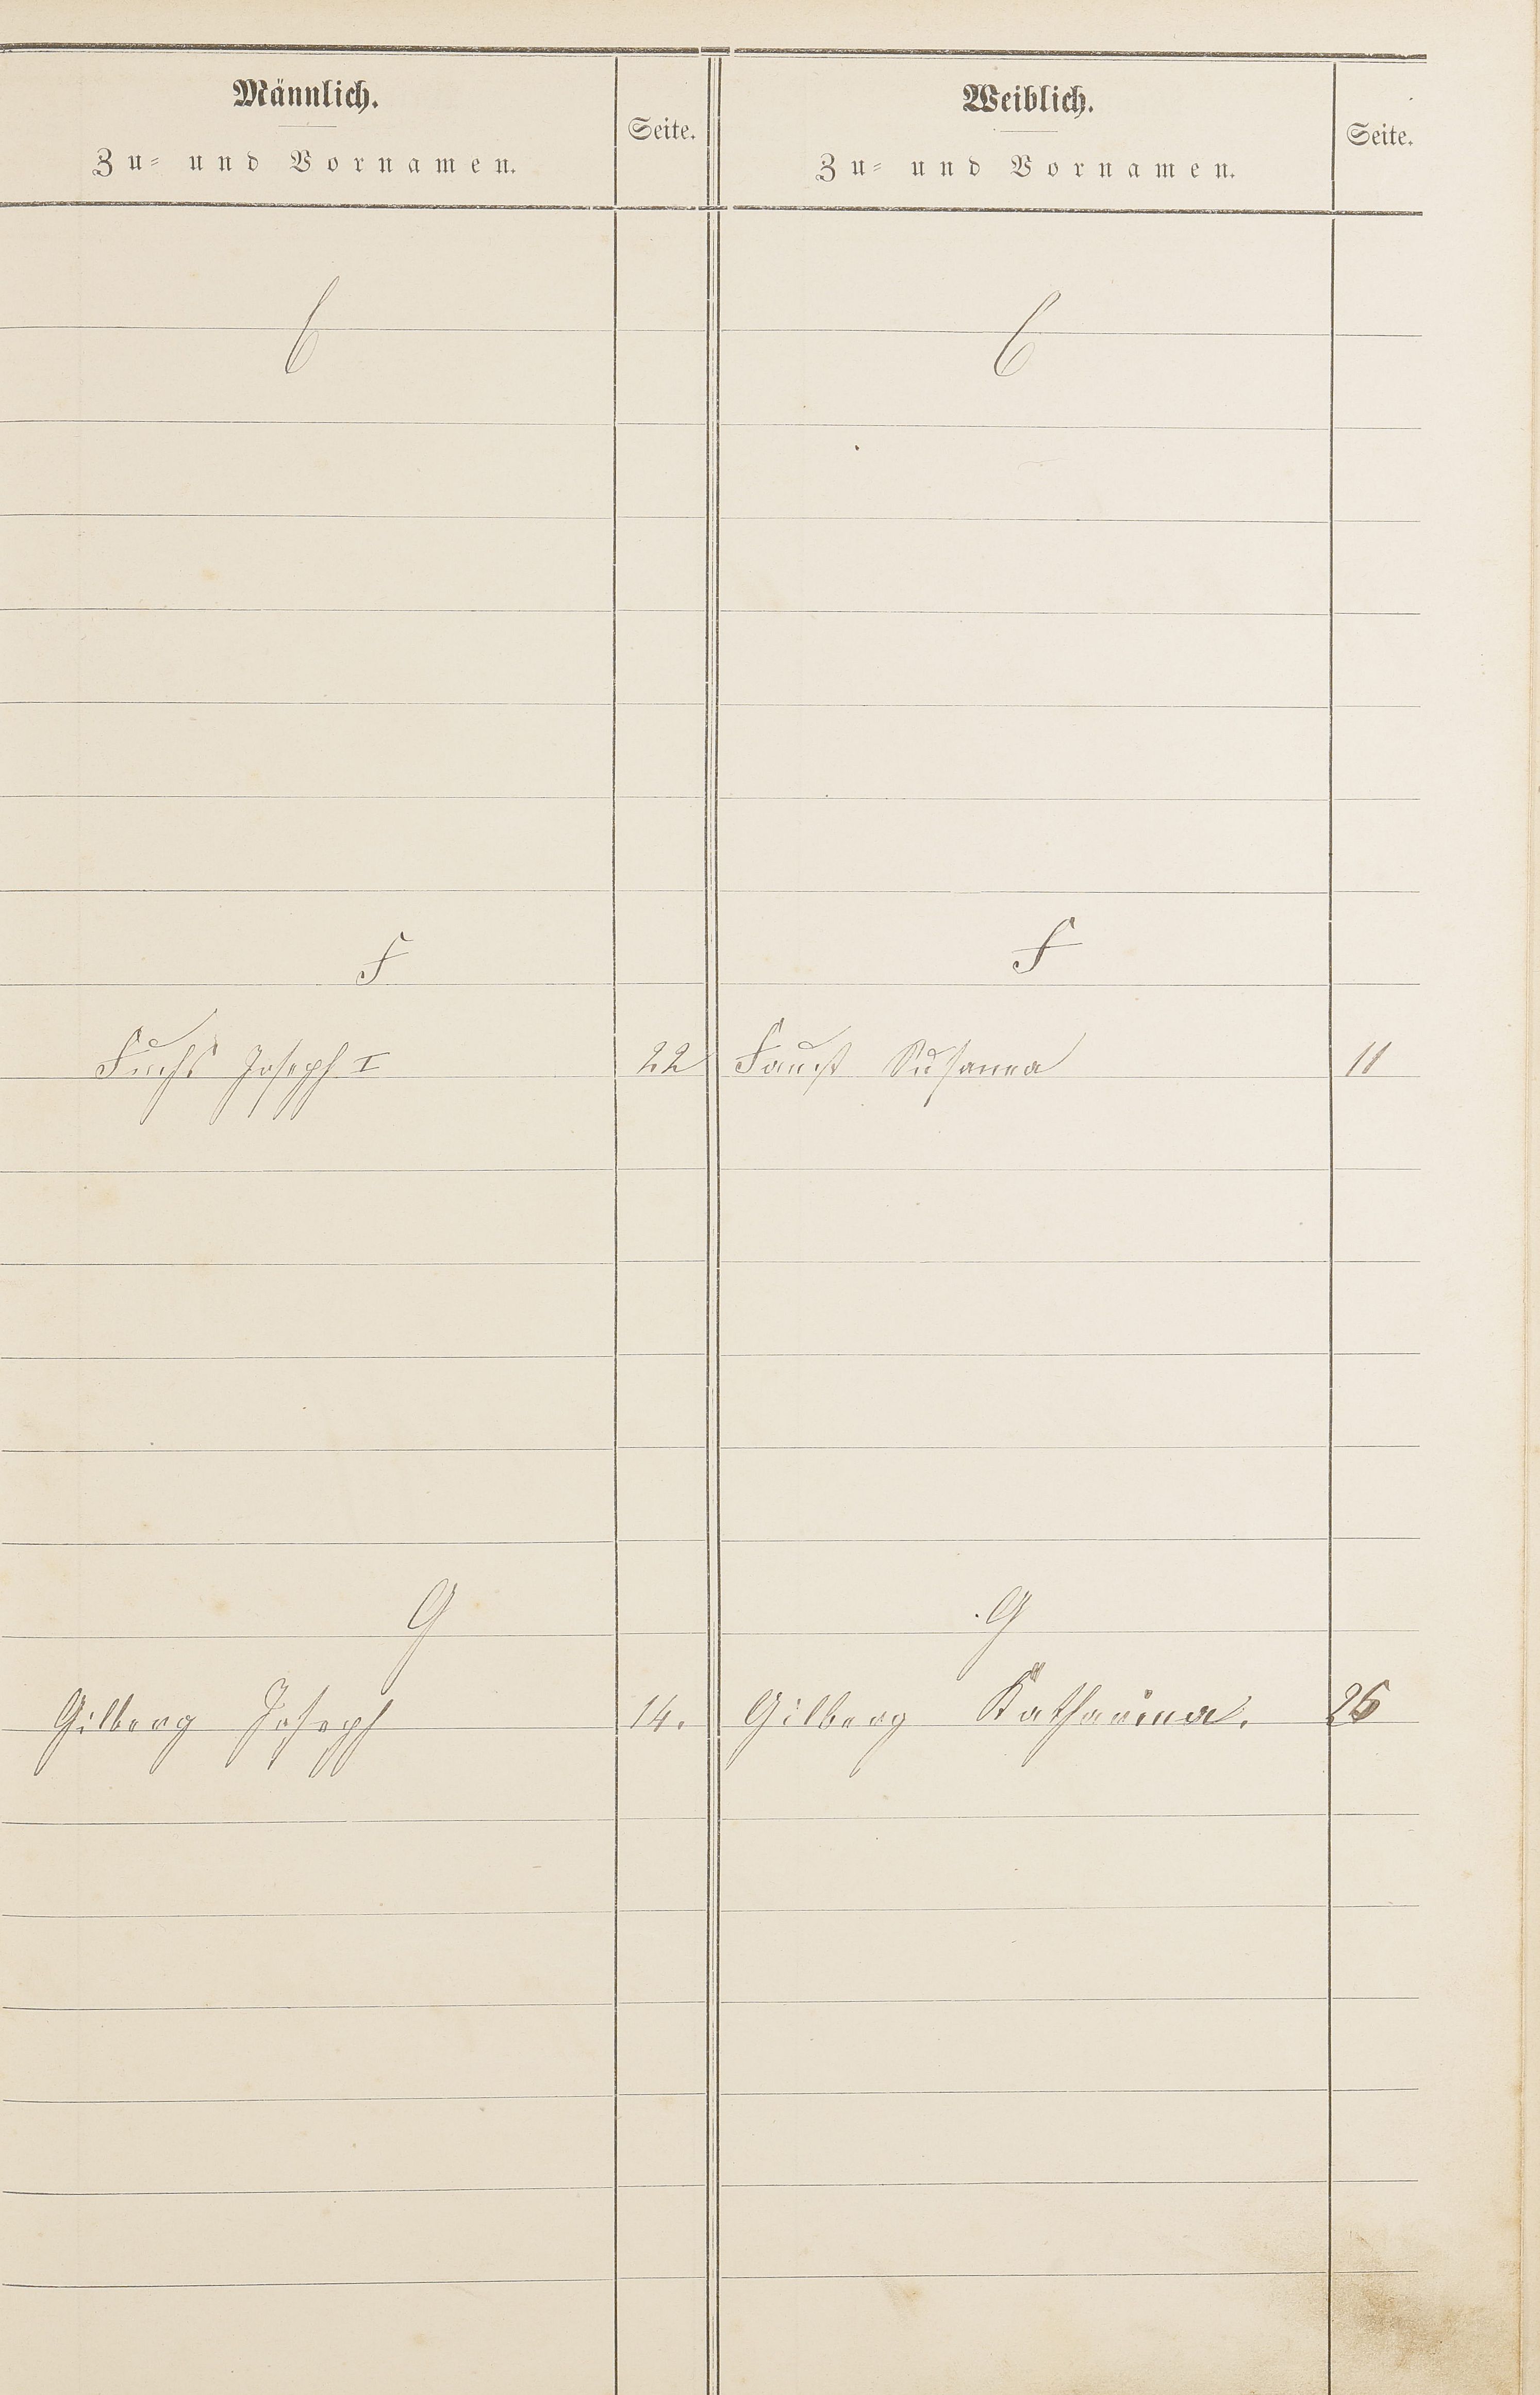 Männlich.
Zu- und Vornamen.
Seite.
Weiblich.
Zu- und Vornamen.
Seite.
E
E
F
F
Fuchs Joseph I
22
Faust Susanna
11
G
G
Gilberg Joseph
14.
Gilberg Katharina.
26